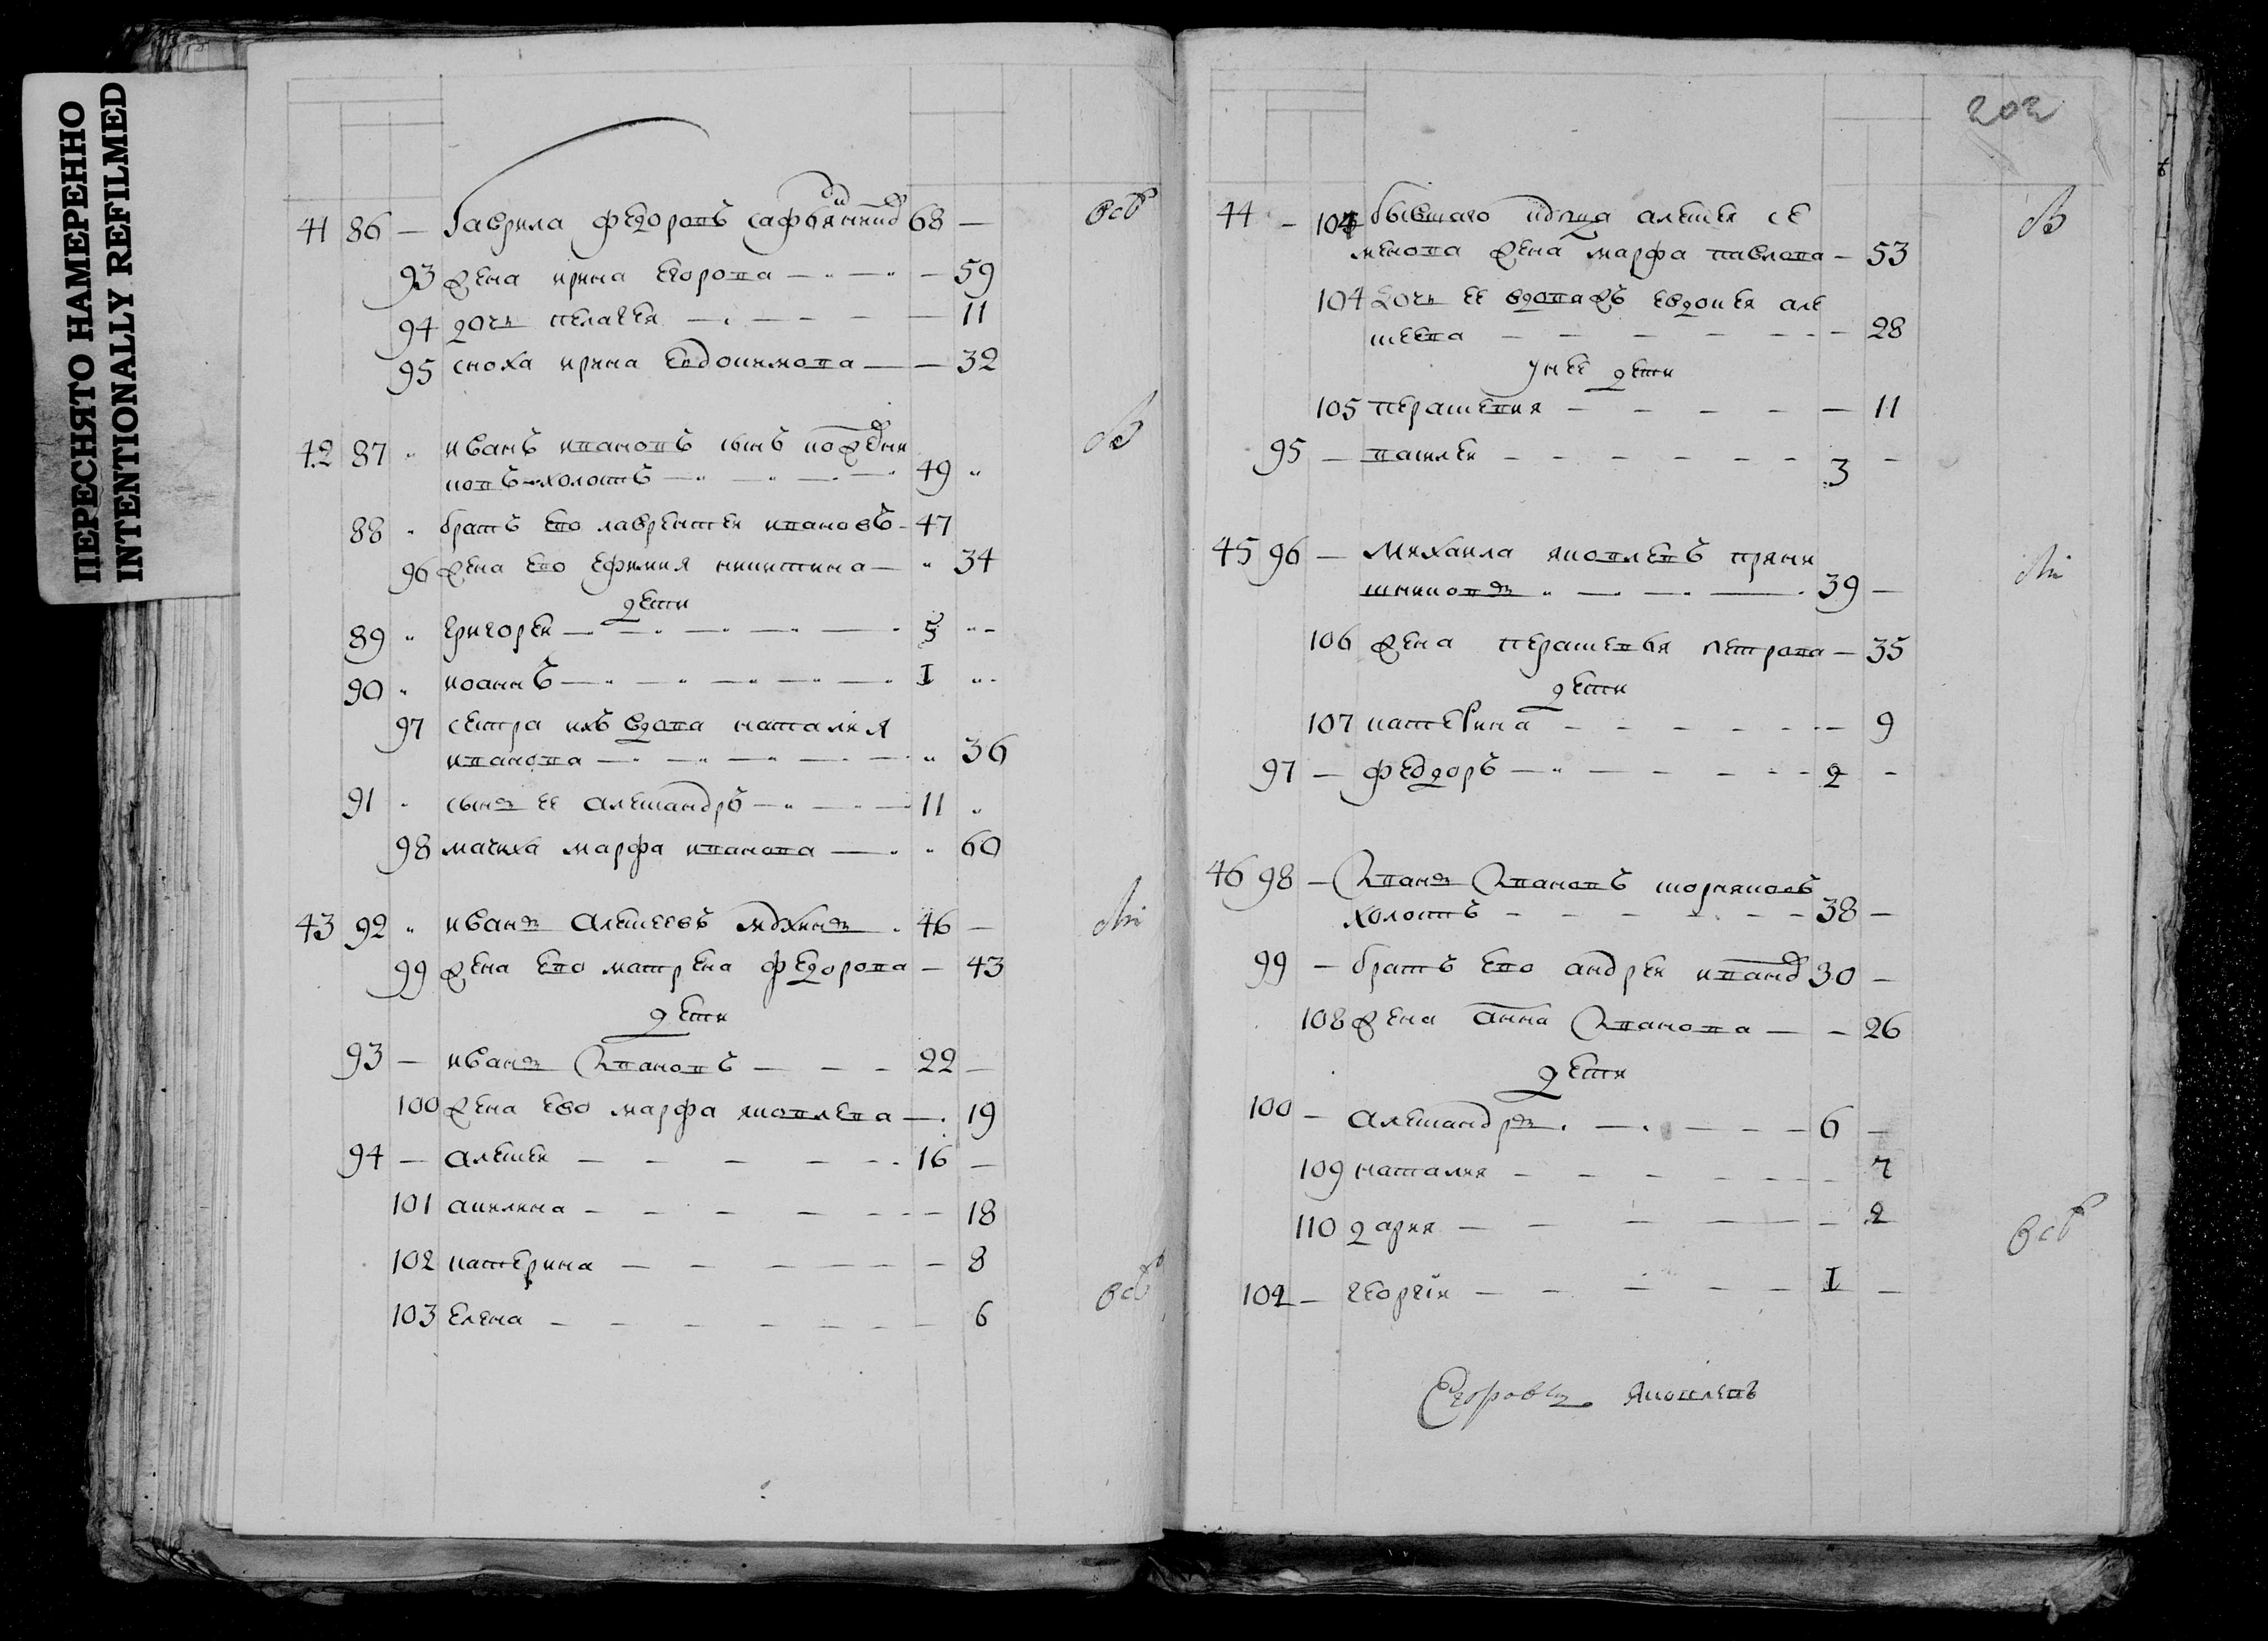 ПЕРЕСНЯТО НАМЕРЕННО
INTENTIONALLY REFILMED
41 86 — Гаврила федоровъ 68 —
93 жена ирина егорова — 59
94 дочь пелагея — 11
95 сноха ирина евдокимова — 32
42 87 иванъ ивановъ сынъ
ковъ холостъ — 49
88 братъ его лаврентеи ивановъ - 47
96 жена его ефимия никитина — 34
дети
89 григореи — 5
90 иоаннъ — 1
97 сестра ихъ вдова наталия
иванова — 36
91 сынъ ее александръ — 11
98 мачиха марфа иванова — 60
43 92 иванъ алексеевъ 46 —
99 жена его матрена федорова — 43
дети
93 — иванъ Ивановъ — 22 —
100 жена ево марфа яковлева — 19
94 — алексеи — 16 —
101 акилина — 18
102 катерина — 8
103 елена — 6
202
44 - 104 бывшаго алексея се
менова жена марфа павлова — 53
104 дочь ее вдова евдокея але
ксеева — 28
у нее дети
105 парасковия — 11
95 — василеи — 3 -
45 96 — Михаила яковлевъ пряни
шниковъ — 39 —
106 жена петрова — 35
дети
107 катерина — 9
97 — федоръ — 2 -
46 98 — Иванъ Ивановъ
холостъ — 38 —
99 — братъ его андреи ивано 30 -
108 жена анна Иванова — 26
дети
100 - александръ — 6 —
109 наталия — 7
110 дария — 2
102 — георгіи — 1 —
Егоровъ яковлевъ